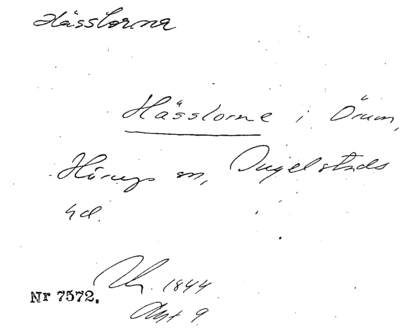 Hässlorna
Hässlorne i Örum,
Hörups sn, Ingelstads
hd.
Nr 7572. 1844
Akt 9